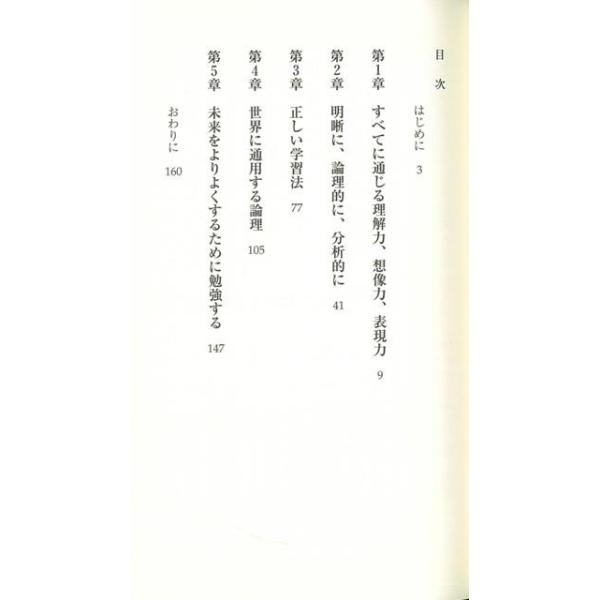 目次
はじめに 3
第1章 すべてに通じる理解力、想像力、表現力 9
第2章 明晰に、論理的に、分析的に 41
第3章 正しい学習法 77
第4章 世界に通用する論理 105
第5章 未来をよりよくするために勉強する 147
おわりに 160